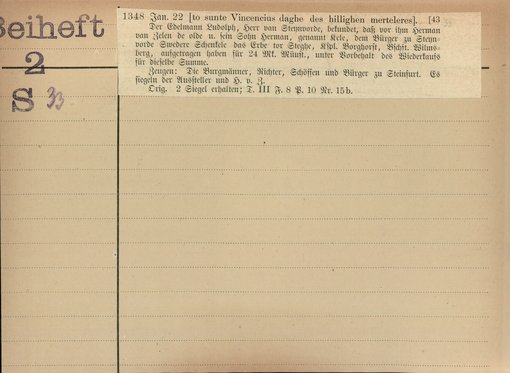 Beiheft
2
S 33
1348 Jan. 22 [to sunte Vincencius daghe des hillighen merteleres]. [43
Der Edelmann Ludolph, Herr van Stenvorde, bekundet, daß vor ihm Herman
van Zelen de olde u. sein Sohn Herman, genannt Kele, dem Bürger zu Steyn-
vorde Swedere Schenkele das Erbe tor Steghe, Kspl. Borghorst, Bschft. Wilms-
berg, aufgetragen haben für 24 Mk. Münst., unter Vorbehalt des Wiederkaufs
für dieselbe Summe.
Zeugen: Die Burgmänner, Richter, Schöffen und Bürger zu Steinfurt. Es
siegeln der Aussteller und H. v. Z.
Orig. 2 Siegel erhalten; T. III F. 8 P. 10 Nr. 15b.